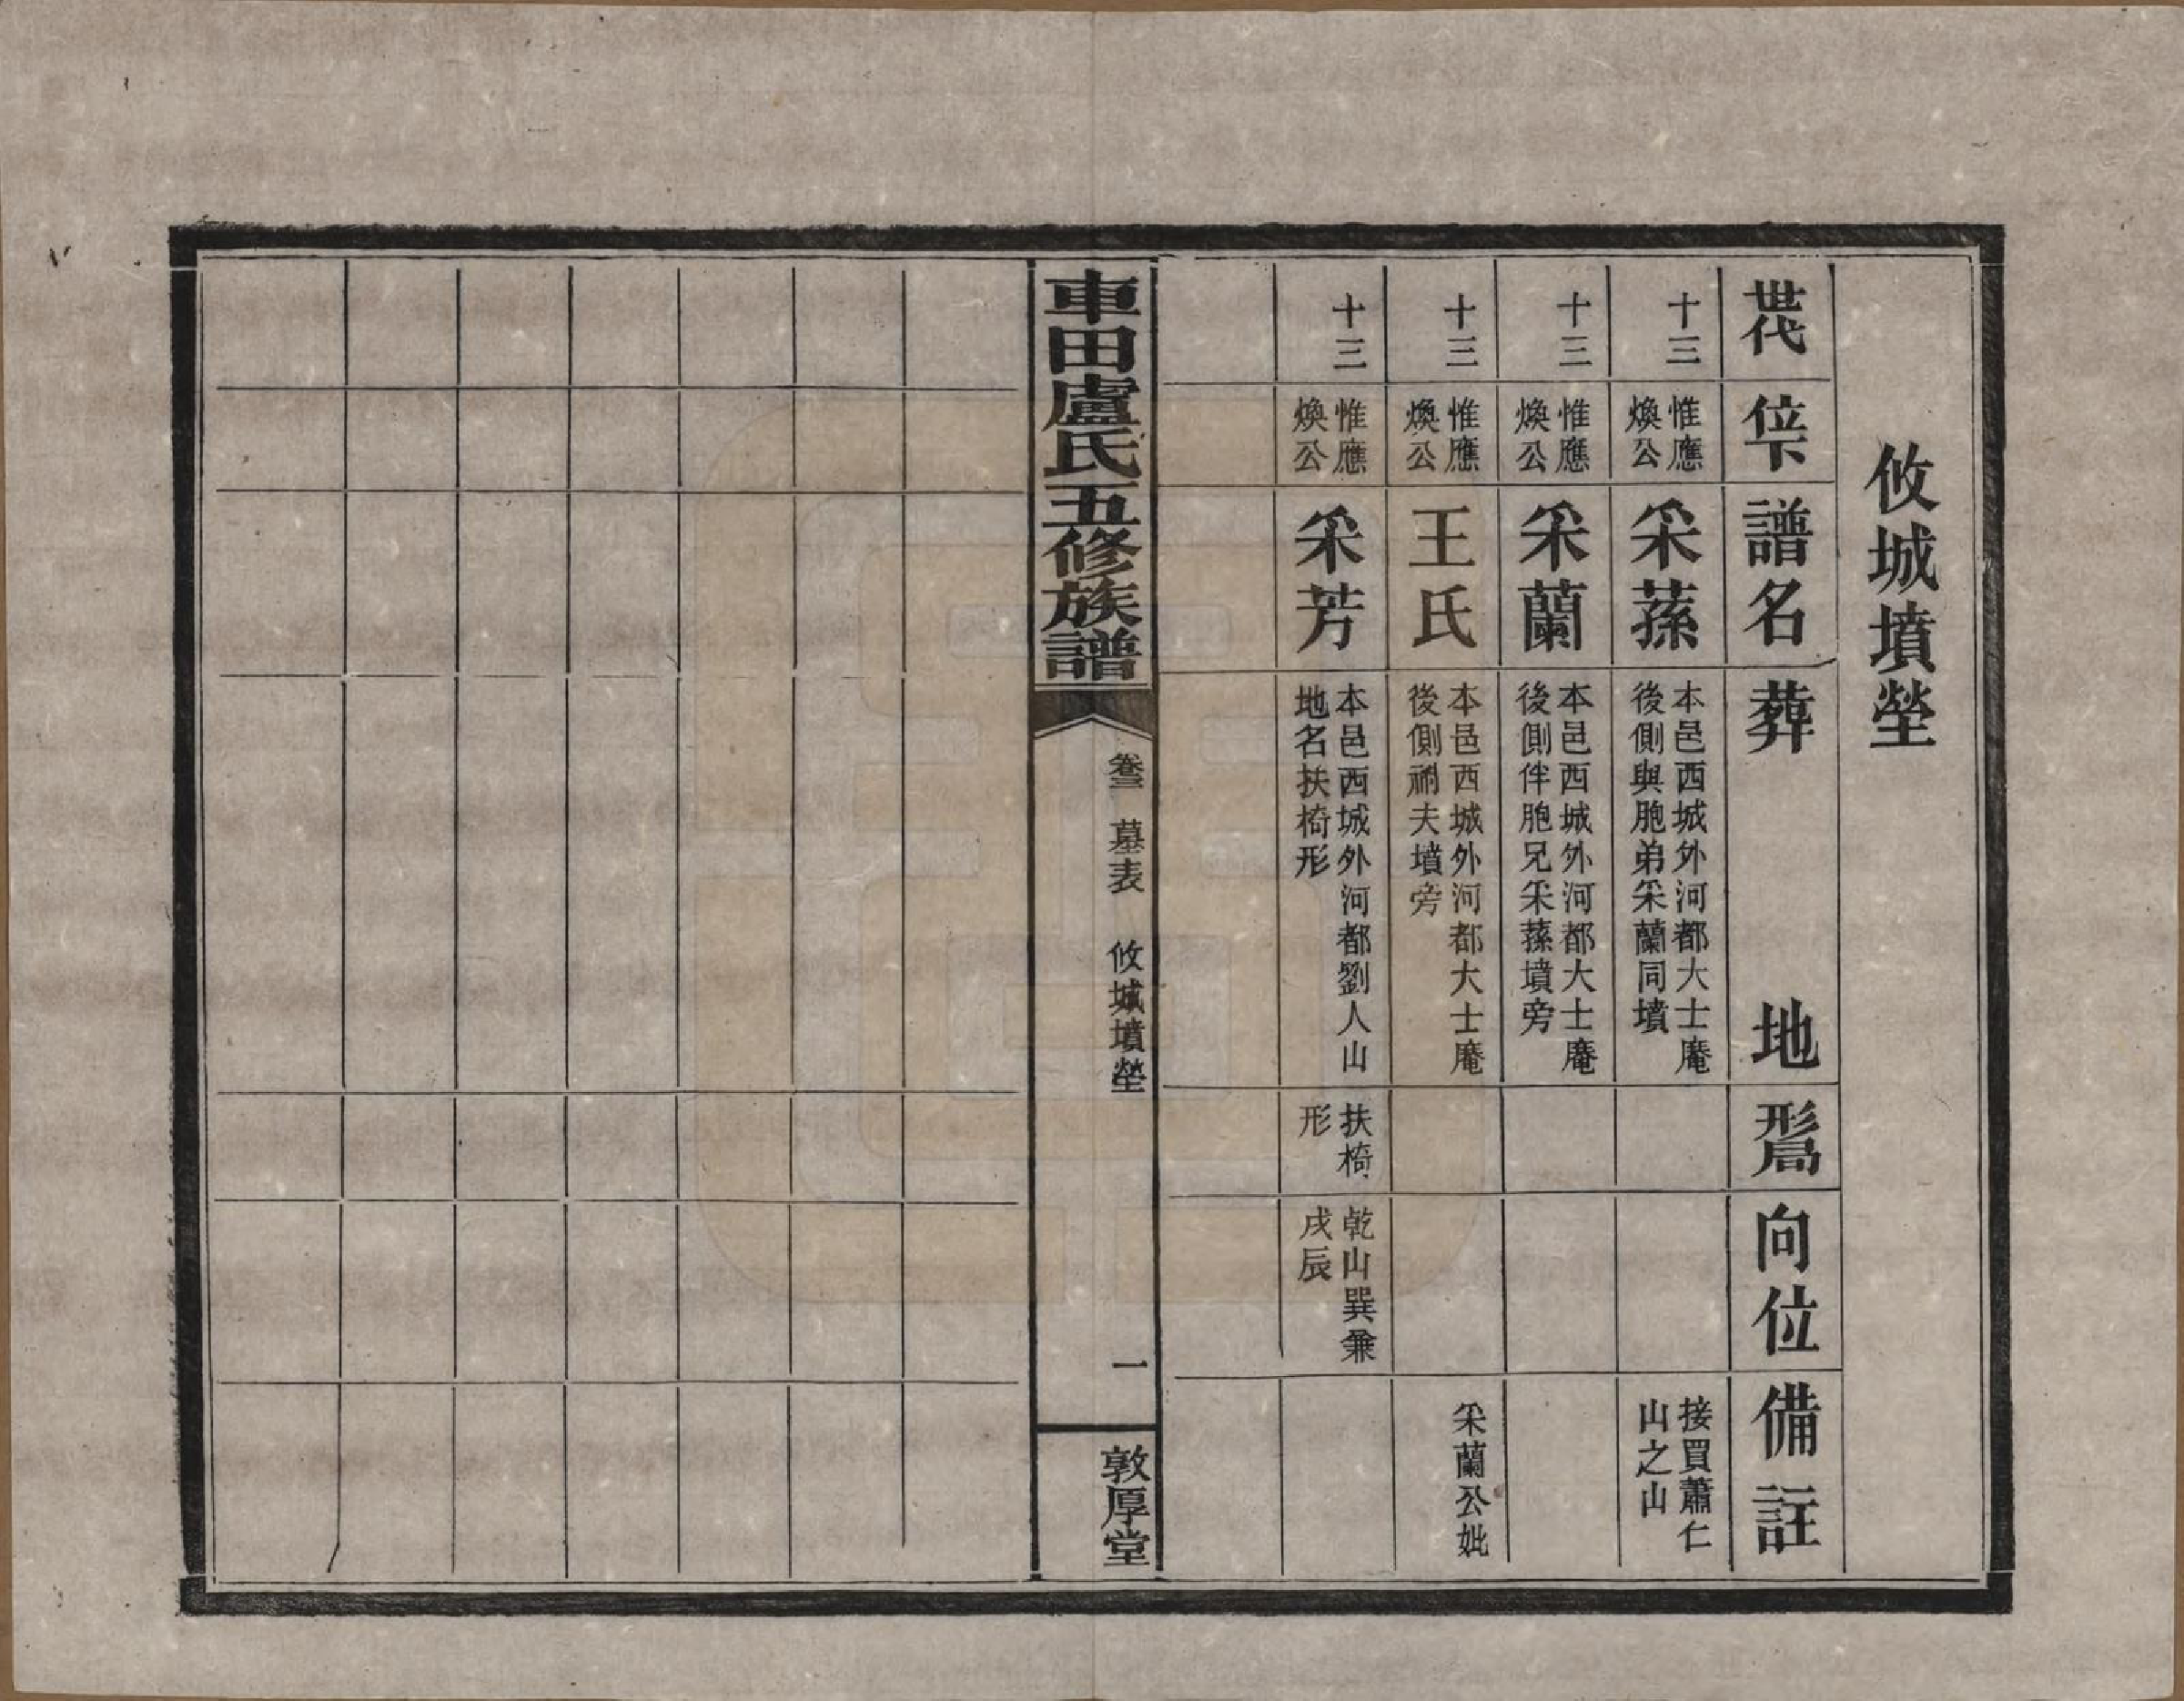 攸城墳塋
世代
位下
譜名
葬地
形局
向位
備註
十三
惟應
煥公
采蓀
本邑西城外河都大士庵
後側與胞弟采蘭同墳
接買蕭仁
山之山
十三
惟應
煥公
采蘭
本邑西城外河都大士庵
後側伴胞兄采蓀墳旁
十三
惟應
煥公
王氏
本邑西城外河都大士庵
後側祔夫墳旁
采蘭公妣
十三
惟應
煥公
采芳
本邑西城外河都劉人山
地名扶椅形
扶椅
形
乾山巽兼
戌辰
車田盧氏五修族譜
卷三 墓表 攸城墳塋
一
敦厚堂